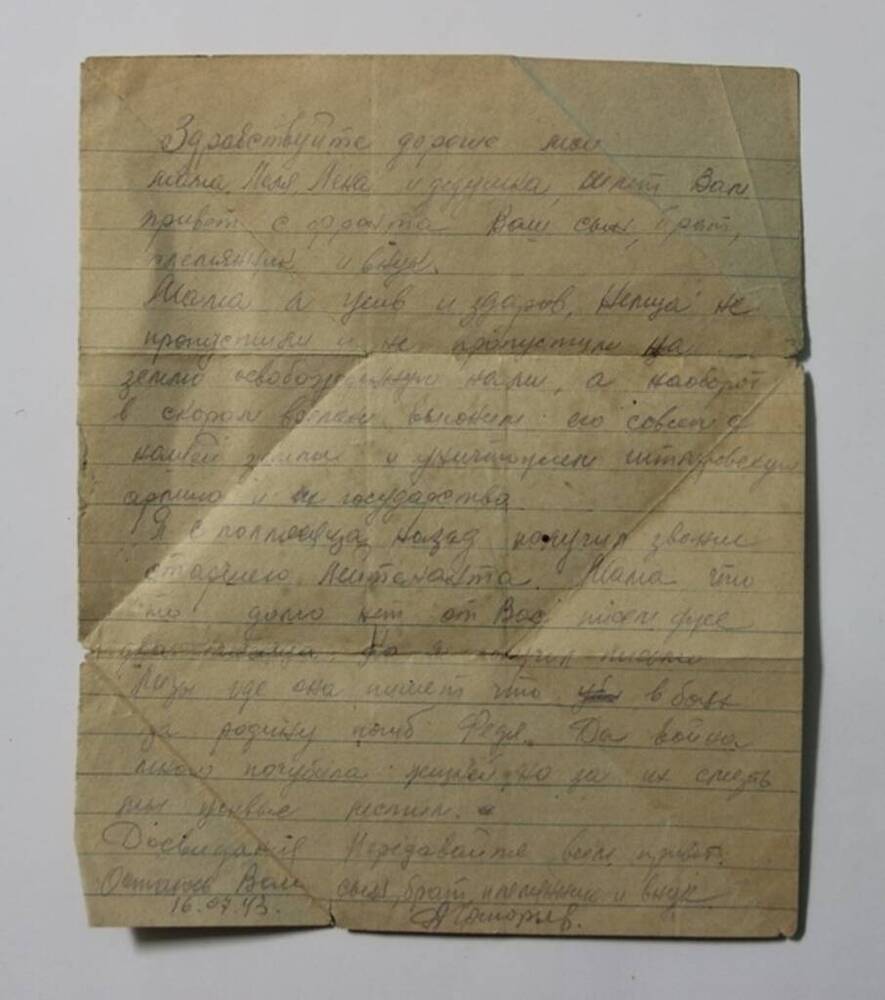 Здравствуйте дорогие мои
мама, Леля, Лена и дедушка, шлет Вам
привет с фронта Ваш сын, брат,
племянник и внук.
Мама я жив и здоров, немца не
пропустили и не пропустим на
землю освобожденную нами, а наоборот
в скором времени выгоним его совсем с
нашей земли и уничтожим гитлеровскую
армию и их государство
Я с полмесяца назад получил звание
старшего лейтенанта. Мама что
то долго нет от Вас писем уже
два месяца. Но я получил письмо
Лизы где она пишет что в боях
за родину погиб Федя. Да война
много погубила жизней, но за их смерть
мы живые мстим.
Досвидания Передавайте всем привет.
Остаюсь Ваш сын, брат, племянник и внук
16.07.43.